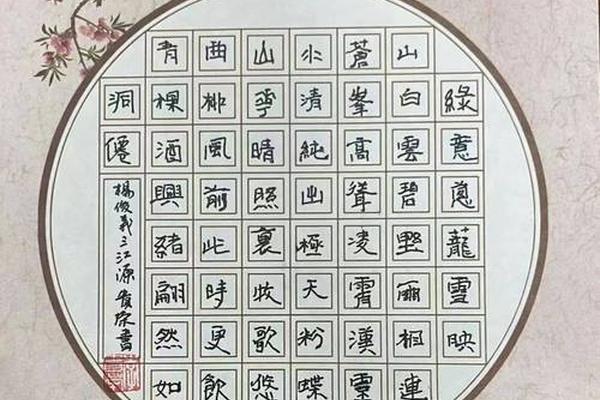 綠意蔥蘢雪映
山白雲碧野兩相連
蒼峯高聳凌霄漢靈
水清純出極天粉蝶
山華晴照裏牧歌悠
曲柳風前此時更飲
青稞酒興緒翩然如
洞僊
楊俊義三江源書